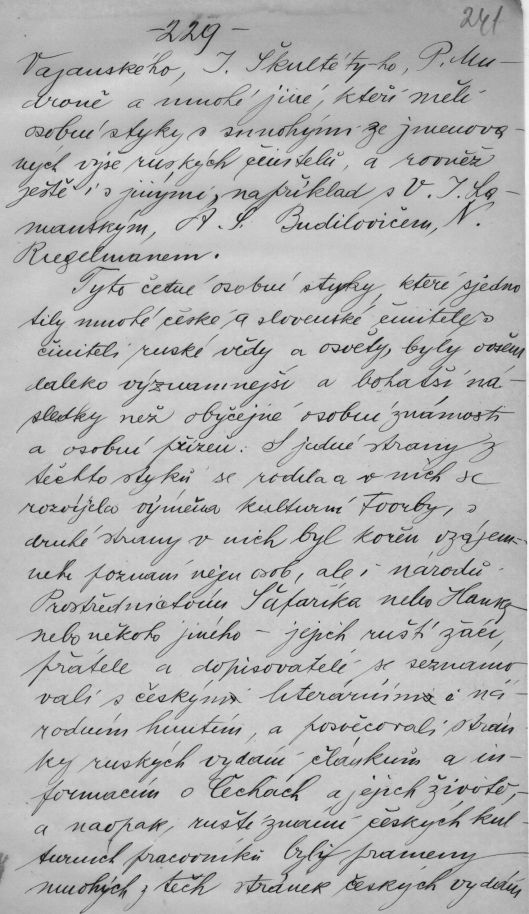 -229-
241
Vajanského, J. Škultéty-ho, P. Mu-
droně a mnohé jiné, kteří měli
osobní styky s mnohými ze jmenova-
ných výše ruských činitelů, a rovněž
ještě i s jinými, například s V. I. La-
manským, A. S. Budilovičem, N.
Riegelmanem.
Tyto četné osobní styky, které sjedno
tily mnohé české a slovenské činitele s
činiteli ruské vědy a osvěty, byly ovšem
daleko významnejší a bohatší ná-
sledky než obyčejné osobní známosti
a osobní přízeň. S jedné strany z
těchto styků se rodila a v nich se
rozvíjela výměna kulturní tvorby, s
druhé strany v nich byl kořen vzájem-
neho poznaní nejen osob, ale i národů.
Prostřednictvím Šafaříka nebo Hanky
nebo někoho jiného - jejich ruští žáci,
přátele a dopisovatelé se seznamo
vali s českým literárním i ná-
rodním hnutím, a posvěcovali strán
ky ruských vydaní článkům a in-
formacím o Čechách a jejich životě, -
a naopak, ruští známí českých kul-
turních pracovníků byli prameny
mnohých z těch stránek českých vydání